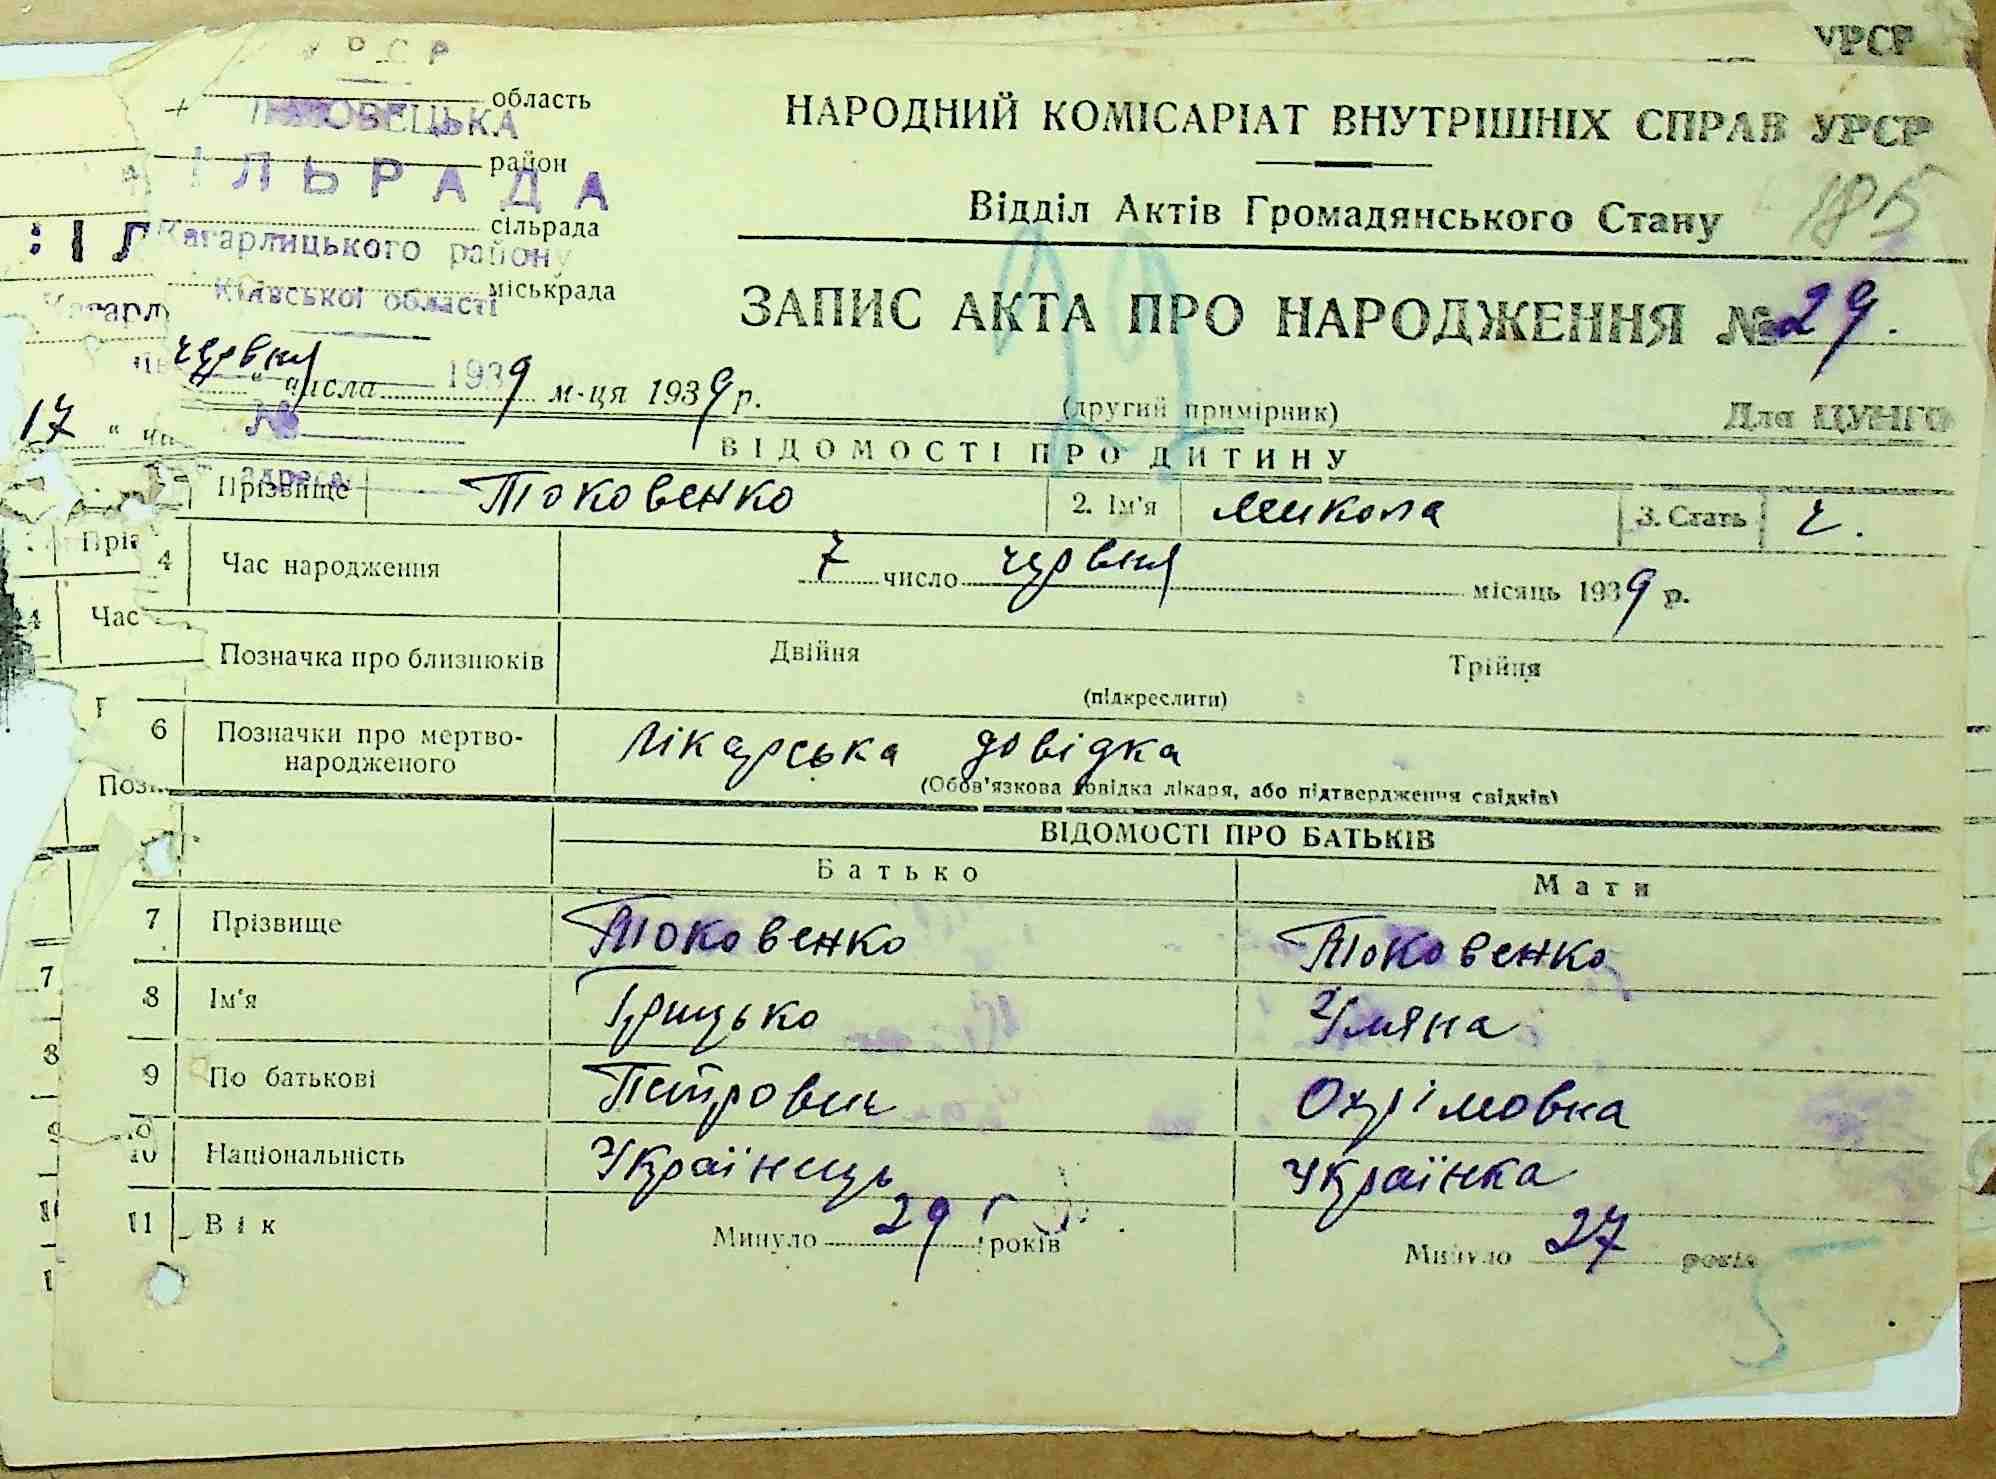 УРСР
УРСР
область
район
ІЛЬРАДА
сільрада
Кагарлицького району
міськрада
Київської області
НАРОДНИЙ КОМІСАРІАТ ВНУТРІШНІХ СПРАВ УРСР
Відділ Актів Громадянського Стану
185
ЗАПИС АКТА ПРО НАРОДЖЕННЯ № 29.
червня
числа 1939 м-ця 1939 р.
(другий примірник)
Для ЦУНГО
17
№
ВІДОМОСТІ ПРО ДИТИНУ
Прізвище Токовенко 2. Ім'я Микола 3. Стать ч.
4 Час народження 7 число червня місяць 1939 р.
Позначка про близнюків Двійня Трійня
(підкреслити)
6 Позначки про мертво-
народженого Лікарська довідка
(Обов'язкова довідка лікаря, або підтвердження свідків)
ВІДОМОСТІ ПРО БАТЬКІВ
Батько Мати
7 Прізвище Токовенко Токовенко
8 Ім'я Грицько Уляна
9 По батькові Петрович Охрімовна
10 Національність Українець Українка
11 Вік Минуло 29 років Минуло 27 років